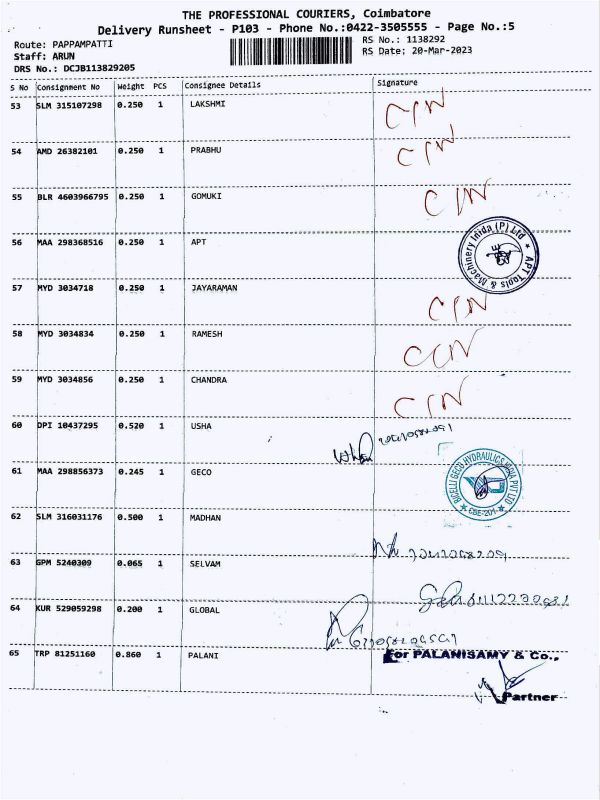 THE PROFESSIONAL COURIERS, Coimbatore
Delivery Runsheet - P103 - Phone No.:0422-3505555 - Page No.:5
Route: PAPPAMPATTI
RS No.: 1138292
Staff: ARUN
RS Date: 20-Mar-2023
DRS No.: DCJB113829205
S No Consignment No Weight PCS Consignee Details Signature
53 SLM 315107298 0.250 1 LAKSHMI
54 AMD 26382101 0.250 1 PRABHU
55 BLR 4603966795 0.250 1 GOMUKI
56 MAA 298368516 0.250 1 APT
APT Tools & Machinery Inida (P) Ltd
57 MYD 3034718 0.250 1 JAYARAMAN
58 MYD 3034834 0.250 1 RAMESH
59 MYD 3034856 0.250 1 CHANDRA
60 DPI 10437295 0.520 1 USHA
61 MAA 298856373 0.245 1 GECO
CBE-201
62 SLM 316031176 0.500 1 MADHAN
63 GPM 5240309 0.065 1 SELVAM
64 KUR 529059298 0.200 1 GLOBAL
65 TRP 81251160 0.860 1 PALANI
For PALANISAMY & Co.,
Partner